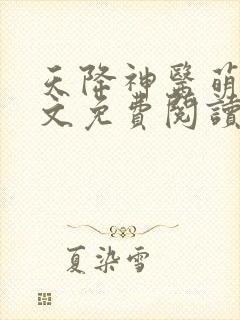 天降神醫萌
文免費閱讀
夏染雪